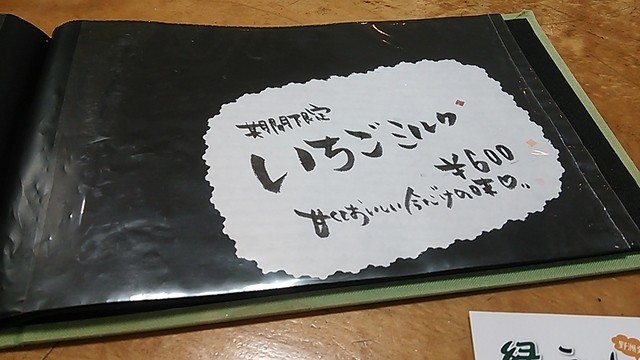 期間限定
いちごミルク
¥600
甘くておいしい今だけの味♡‥